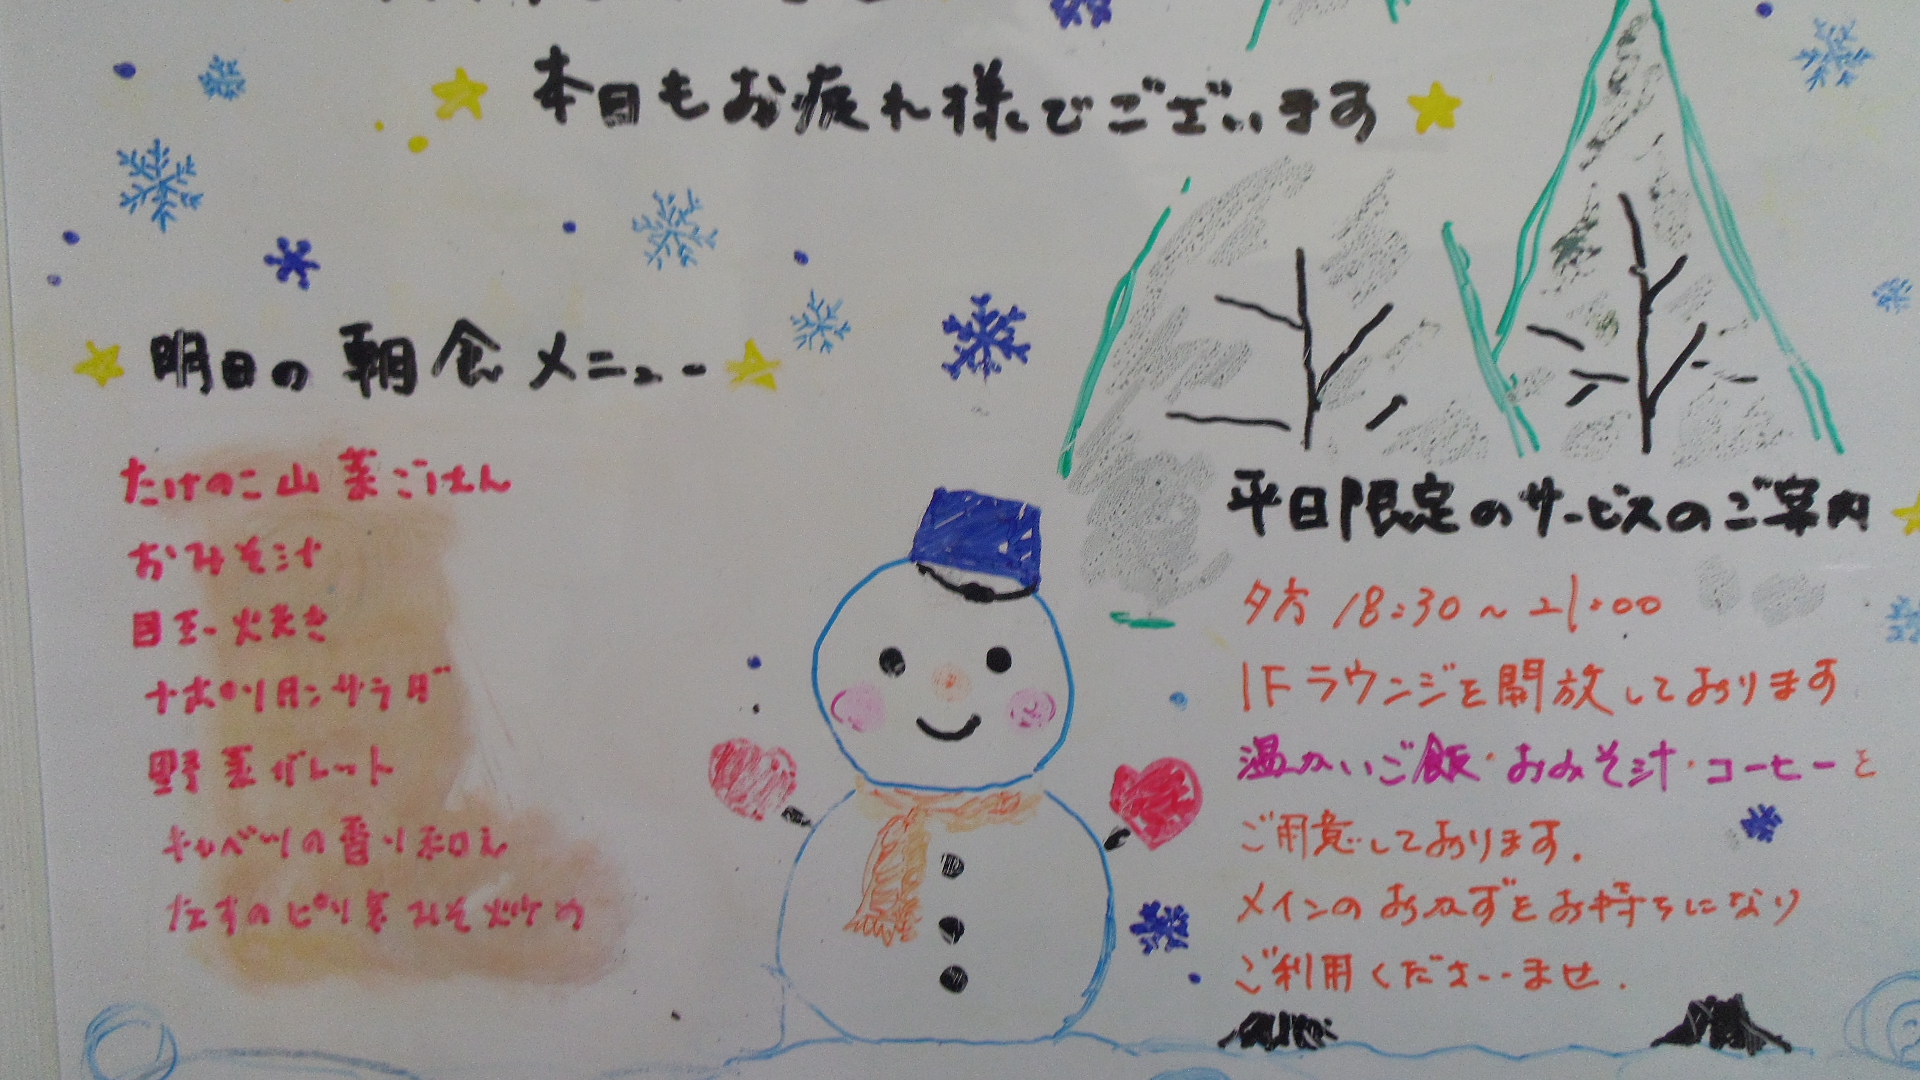 本日もお疲れ様でございます
明日の朝食メニュー
たけのこ山菜ごはん
おみそ汁
目玉焼き
サラダ
野菜ガレット
キャベツの香り和え
なすのピリ辛みそ炒め
平日限定のサービスのご案内
夕方 18:30～21:00
1Fラウンジを開放しております
温かいご飯・おみそ汁・コーヒーを
ご用意しております.
メインのおかずをお持ちになり
ご利用くださいませ.